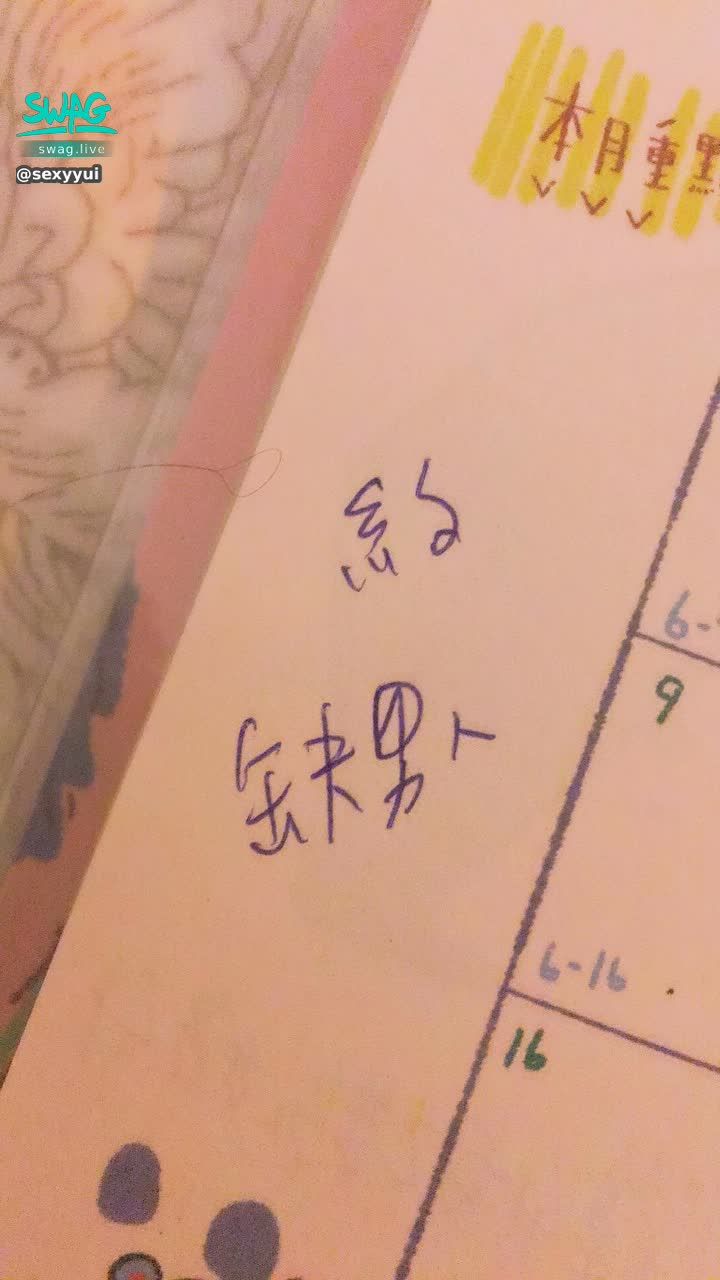 SWAG
swag.live
@sexyyui
本月重點
約
缺男人
6-
9
6-16
16